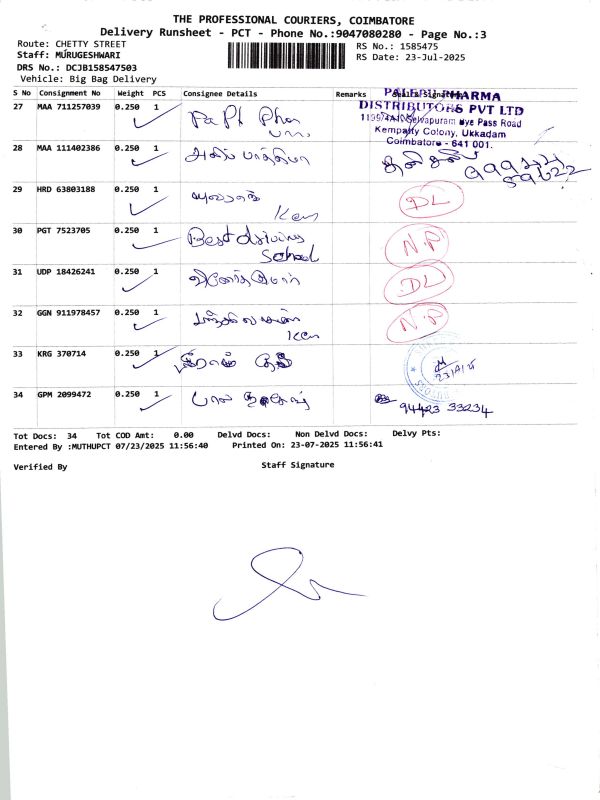 THE PROFESSIONAL COURIERS, COIMBATORE
Delivery Runsheet - PCT - Phone No.:9047080280 - Page No.:3
Route: CHETTY STREET
RS No.: 1585475
Staff: MURUGESHWARI
RS Date: 23-Jul-2025
DRS No.: DCJB158547503
Vehicle: Big Bag Delivery
S No Consignment No Weight PCS Consignee Details Remarks
27 MAA 711257039 0.250 1
PALEPU PHARMA
DISTRIBUTORS PVT LTD
Selvapuram Bye Pass Road
Kempatty Colony, Ukkadam
Coimbatore - 641 001.
28 MAA 111402386 0.250 1 அலிப் பாத்திமா
29 HRD 63803188 0.250 1 DL
30 PGT 7523705 0.250 1 Best driving
School
N.P
31 UDP 18426241 0.250 1 DL
32 GGN 911978457 0.250 1 N.P
33 KRG 370714 0.250 1
34 GPM 2099472 0.250 1 94423 33234
Tot Docs: 34 Tot COD Amt: 0.00 Delvd Docs: Non Delvd Docs: Delvy Pts:
Entered By :MUTHUPCT 07/23/2025 11:56:40 Printed On: 23-07-2025 11:56:41
Verified By Staff Signature